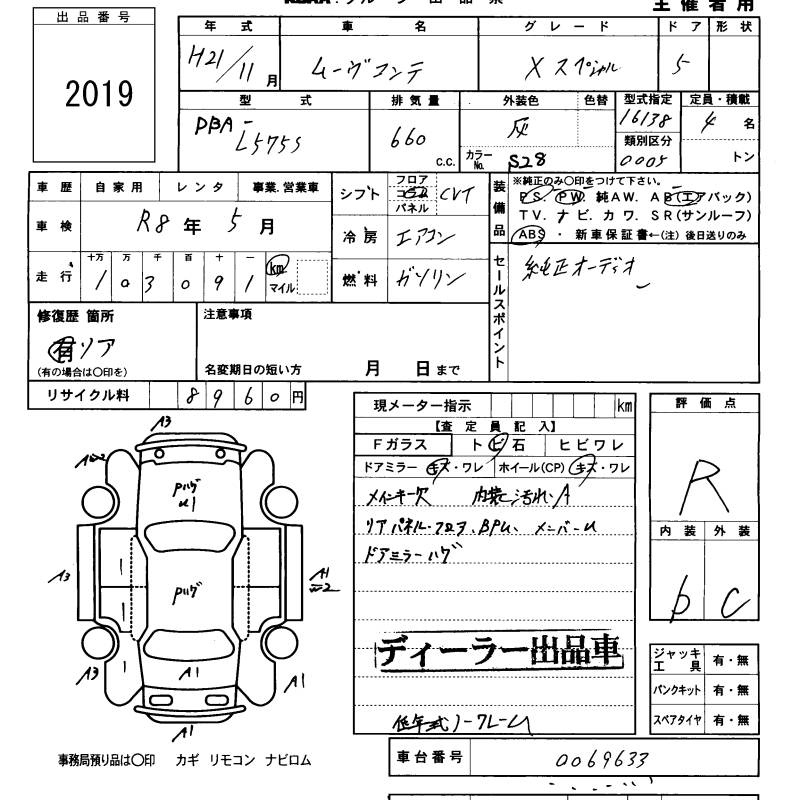 主催者用
出品番号
2019
年式 車名 グレード ドア 形状
H21/11月 ムーヴコンテ X スペシャル 5
型式 排気量 外装色 色替 型式指定 定員・積載
DBA-L575S 660 C.C. 灰 16138 4名
カラーNo. S28 類別区分 0005 トン
車歴 自家用 レンタ 事業.営業車
シフト フロア コラム パネル CVT
装備品 ※純正のみ〇印をつけて下さい。
PS. PW. 純AW. AB(エアバック)
TV. ナビ. カワ. SR(サンルーフ)
ABS ・ 新車保証書←(注) 後日送りのみ
車検 R8年 5月
冷房 エアコン
走行 十万 万 千 百 十 一 km マイル
103091
燃料 ガソリン
セールスポイント 純正オーディオ
修復歴 箇所
有 リア
(有の場合は〇印を)
注意事項
名変期日の短い方 月 日まで
リサイクル料 8960円
現メーター指示 km
【査定員記入】
Fガラス トビ石 ヒビワレ
ドアミラー キズ・ワレ ホイール(CP) キズ・ワレ
メインキー欠 内装ヨゴレ、A
リアパネル・フロア、BPU、メンバーU
ドアミラーハゲ
ディーラー出品車
低年式ノークレーム
評価点
R
内装 外装
b C
ジャッキ工具 有・無
パンクキット 有・無
スペアタイヤ 有・無
A3
Pハゲ
U1
A3
Pハゲ
A1
A3
A1
A1
A1
事務局預り品は〇印 カギ リモコン ナビロム
車台番号 0069633